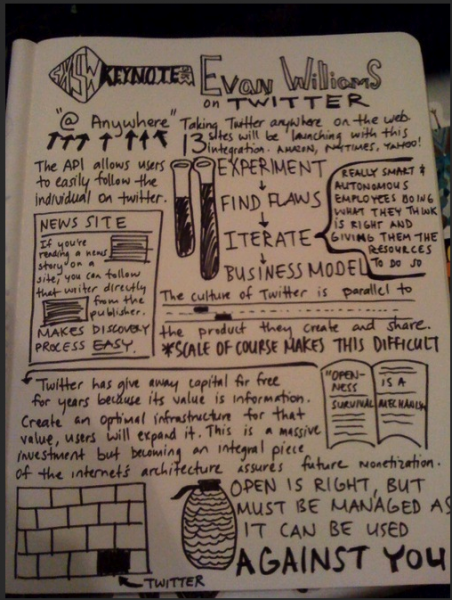 SXSW KEYNOTE
Evan Williams
on TWITTER
"@ Anywhere"
Taking Twitter anywhere on the web.
13 sites will be launching with this
integration. AMAZON, NYTIMES, YAHOO!
The API allows users
to easily follow the
individual on twitter.
NEWS SITE
If you're
reading a news
story on a
site, you can follow
that writer directly
from the
publisher.
MAKES DISCOVERY
PROCESS EASY.
EXPERIMENT
FIND FLAWS
ITERATE
BUSINESS MODEL
REALLY SMART &
AUTONOMOUS
EMPLOYEES DOING
WHAT THEY THINK
IS RIGHT AND
GIVING THEM THE
RESOURCES
TO DO SO
The culture of Twitter is parallel to
the product they create and share.
*SCALE OF COURSE MAKES THIS DIFFICULT
Twitter has give away capital for free
for years because its value is information.
Create an optimal infrastructure for that
value, users will expand it. This is a massive
investment but becoming an integral piece
of the internet's architecture assures future monetization.
"OPEN-
NESS
SURVIVAL
IS A
MECHANISM
TWITTER
OPEN IS RIGHT, BUT
MUST BE MANAGED AS
IT CAN BE USED
AGAINST YOU